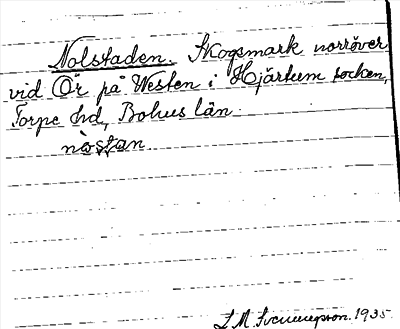 Nolstaden. Skogsmark norröver
vid Ör på Westen i Hjärtum socken,
Torpe hd, Bohus län.
nåstan
L. M. Svenungsson. 1935.